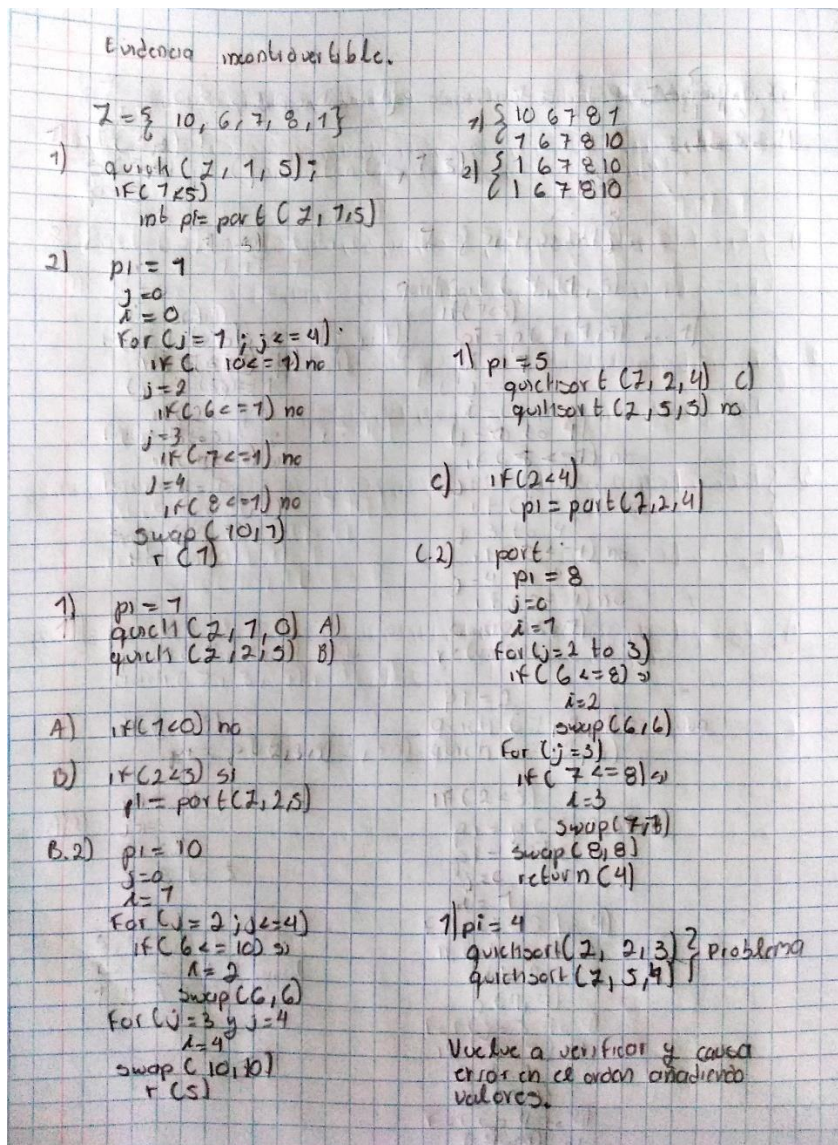 Evidencia incontrovertible.
Z = { 10, 6, 7, 8, 1}
1) quick (Z, 1, 5);
if(1<5)
int pi= part (Z, 1,5)
2) pi = 1
j=0
i=0
For (j= 1 ; j<=4)
if ( 10<=1) no
j=2
if( 6<=1) no
j=3
if( 7<=1) no
j=4
if( 8<=1) no
swap( 10,1)
r (1)
1) pi = 1
quick (Z, 1, 0) A)
quick (Z, 2, 5) B)
A) if(1<0) no
B) if(2<5) si
pi = part(Z, 2,5)
B.2) pi= 10
j=0
i=1
For (j= 2 ; j<=4)
if( 6<= 10) si
i= 2
swap (6,6)
For (j=3 y j=4
i=4
swap ( 10, 10)
r (5)
1) { 10 6 7 8 1
{ 1 6 7 8 10
2) { 1 6 7 8 10
{ 1 6 7 8 10
1) pi = 5
quicksort (Z, 2, 4) C)
quiksort (Z, 5, 5) no
C) if(2<4)
pi = part(Z, 2, 4)
C.2) part
pi = 8
j=0
i=1
for(j=2 to 3)
if( 6 <=8) si
i=2
swap (6,6)
For (j=3)
if( 7 <=8) si
i=3
swap(7,7)
swap (8,8)
return (4)
1) pi = 4
quicksort(Z, 2,3) } problema
quicksort (Z, 5,4)
Vuelve a verificar y causa
error en el orden añadiendo
valores.